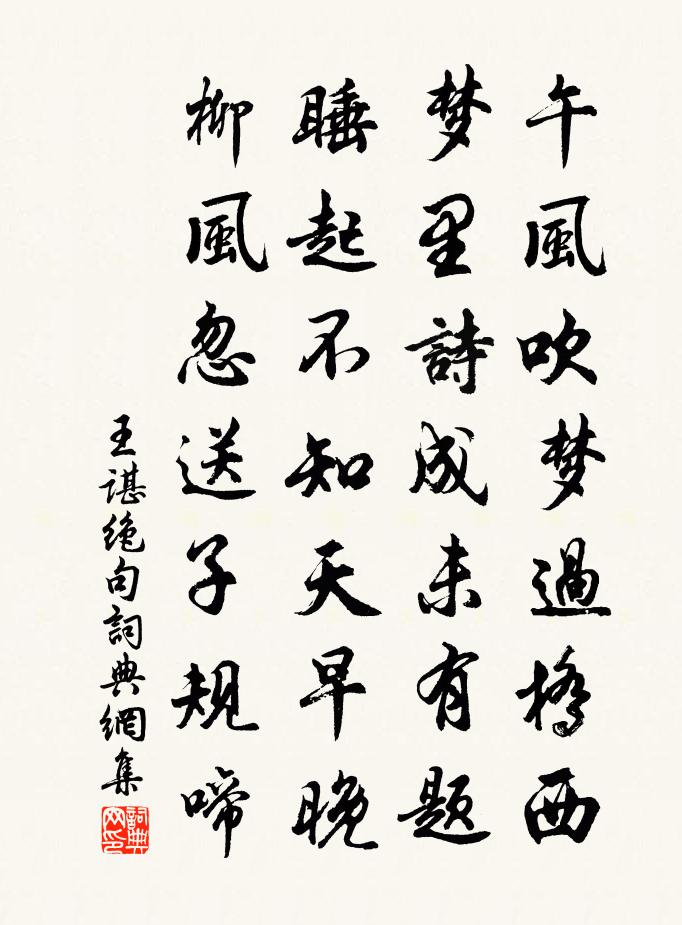 午風吹梦過橋西
梦里詩成未有题
睡起不知天早晚
柳風忽送子規啼
王諶絶句詞典網集
詞典网印